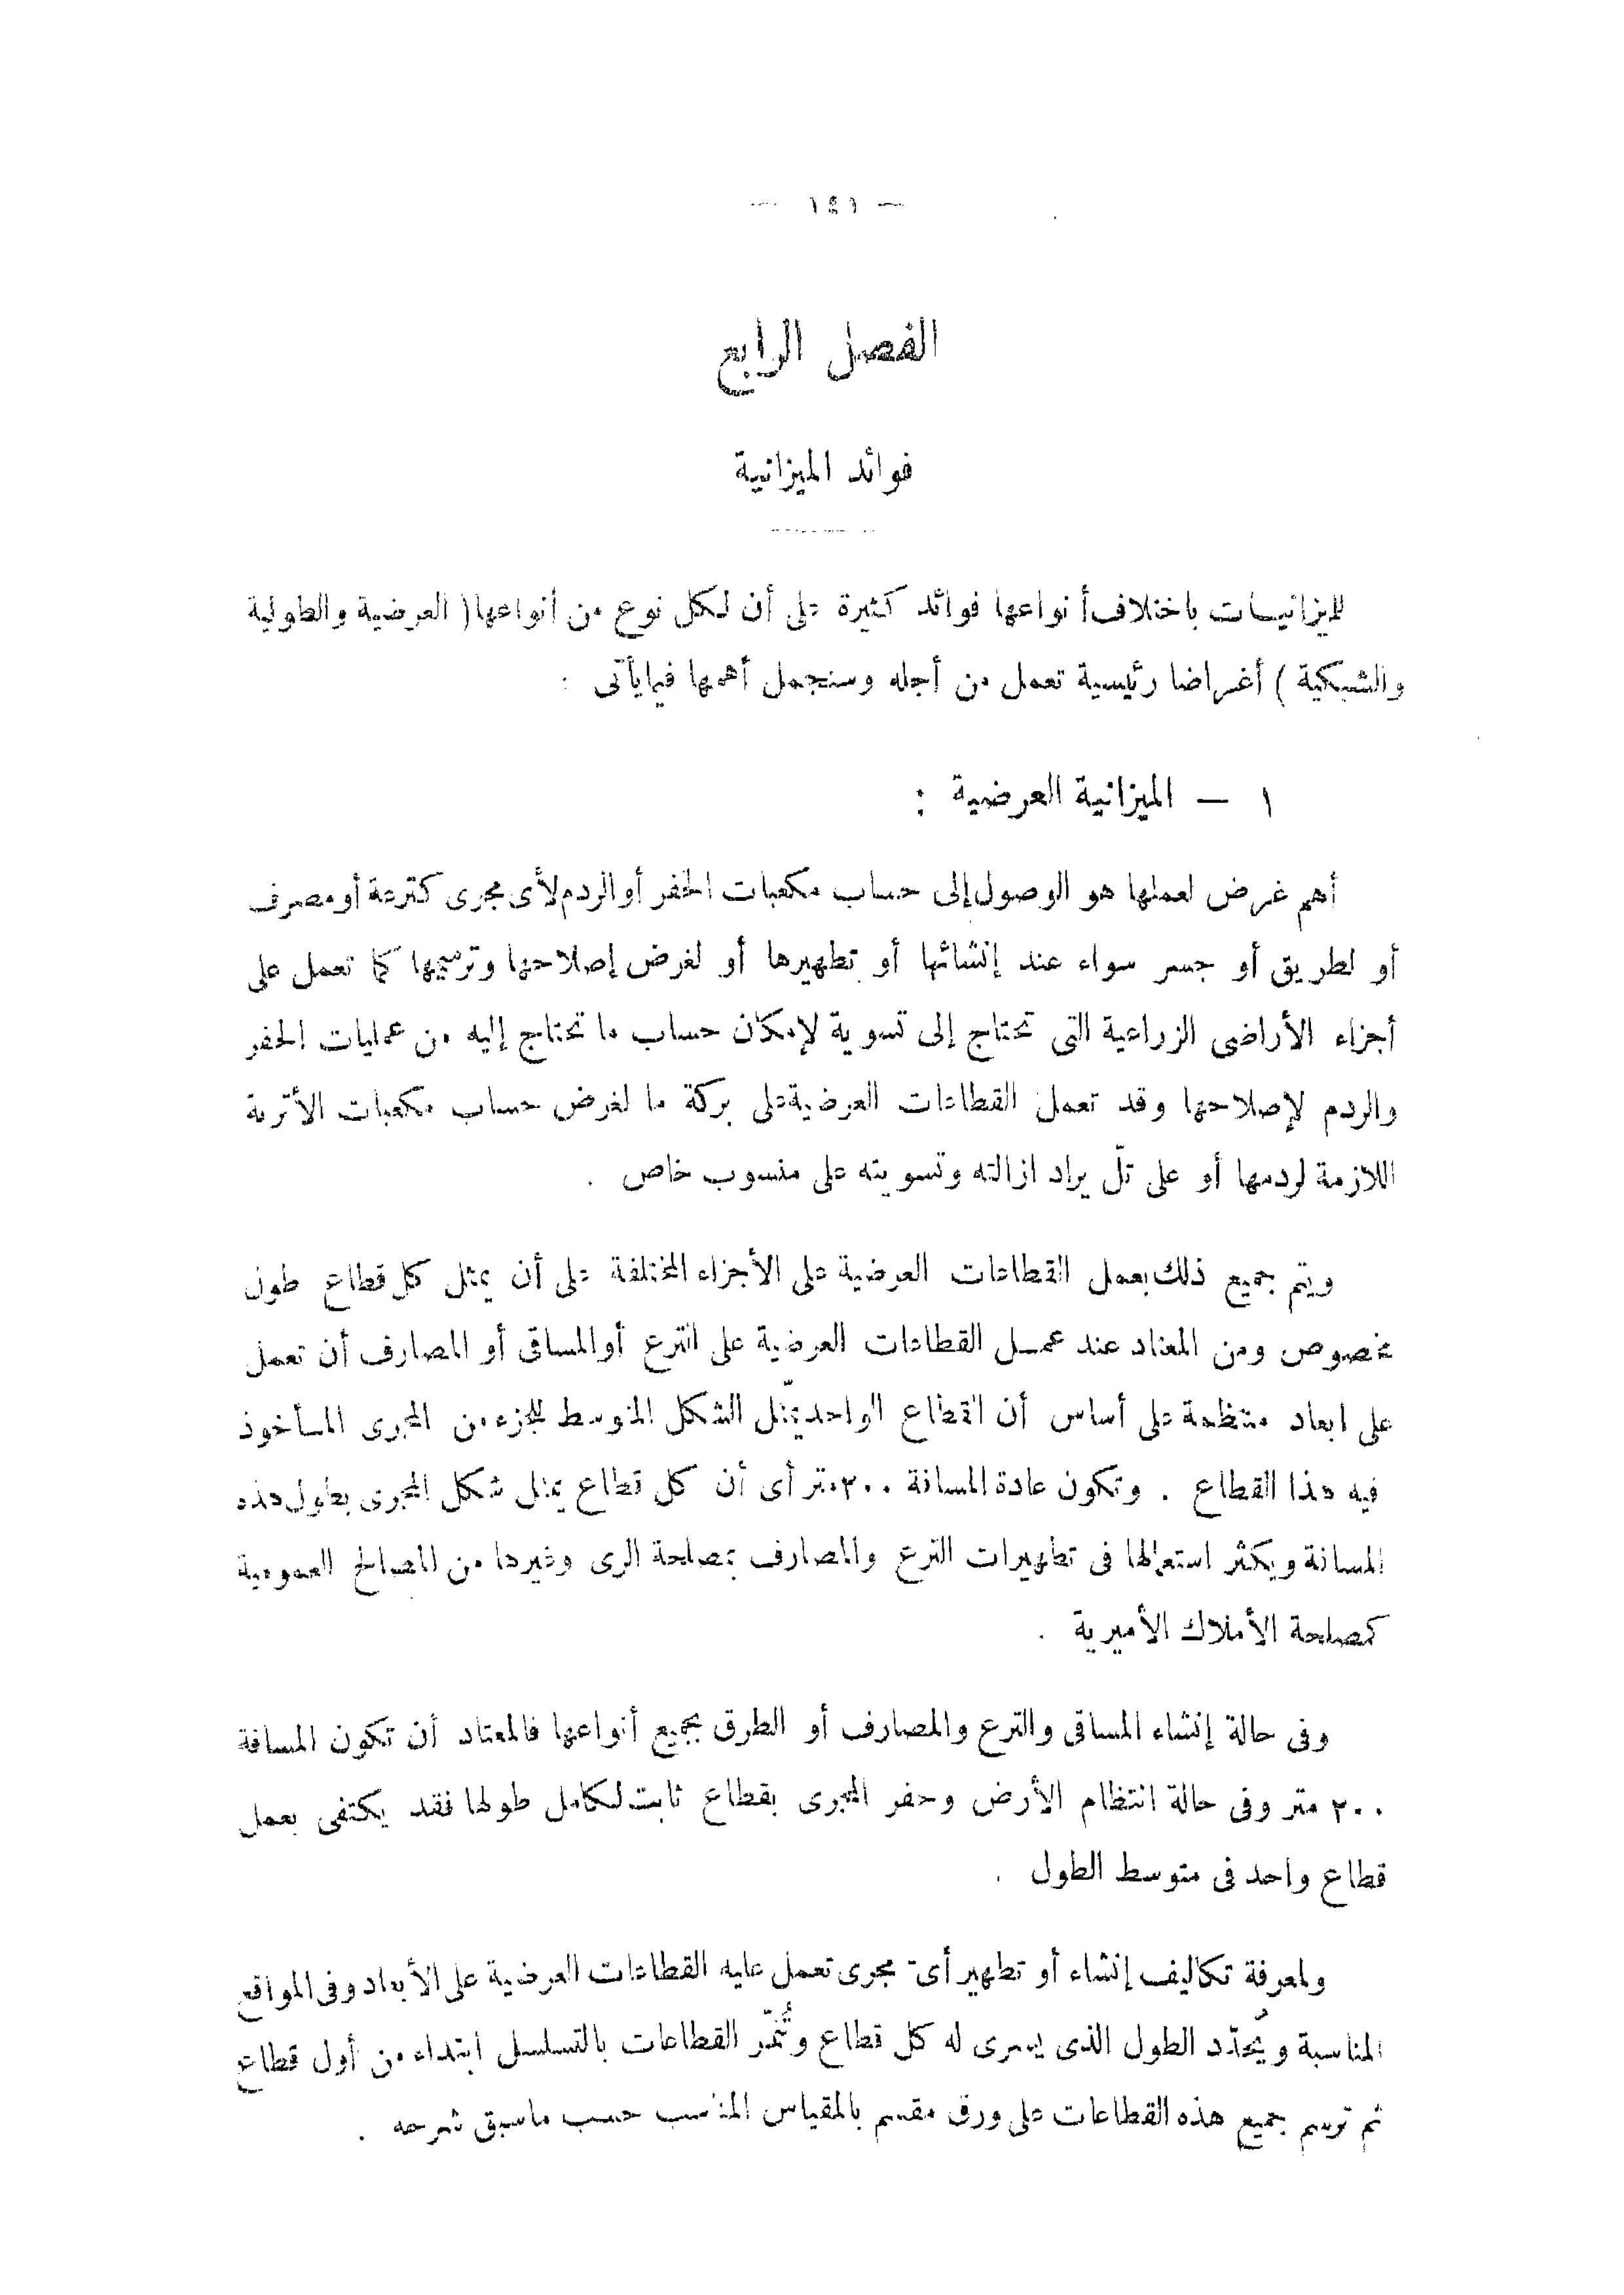 — ١٤١ —
الفصل الرابع
فوائد الميزانية
للميزانيات باختلاف أنواعها فوائد كثيرة على أن لكل نوع من أنواعها ( العرضية والطولية
والشبكية ) أغراضا رئيسية تعمل من أجله وسنجمل أهمها فيما يأتى :
١ — الميزانية العرضية :
أهم غرض لعملها هو الوصول إلى حساب مكعبات الحفر أو الردم لأى مجرى كترعة أو مصرف
أو لطريق أو جسر سواء عند إنشائها أو تطهيرها أو لغرض إصلاحها وترميمها كما تعمل على
أجزاء الأراضى الزراعية التى تحتاج إلى تسوية لإمكان حساب ما تحتاج إليه من عمليات الحفر
والردم لإصلاحها وقد تعمل القطاعات العرضية على بركة ما لغرض حساب مكعبات الأتربة
اللازمة لردمها أو على تلّ يراد ازالته وتسويته على منسوب خاص .
ويتم جميع ذلك بعمل القطاعات العرضية على الأجزاء المختلفة على أن يمثل كل قطاع طول
مخصوص ومن المعتاد عند عمل القطاعات العرضية على الترع أو المساقى أو المصارف أن تعمل
على ابعاد منتظمة على أساس أن القطاع الواحد يمثّل الشكل المتوسط للجزء من المجرى المأخوذ
فيه هذا القطاع . وتكون عادة المسافة ٢٠٠ متر أى أن كل قطاع يمثل شكل المجرى بطول هذه
المسافة ويكثر استعمالها فى تطهيرات الترع والمصارف بمصلحة الرى وغيرها من المصالح العمومية
كمصلحة الأملاك الأميرية .
وفى حالة إنشاء المساقى والترع والمصارف أو الطرق بجميع أنواعها فالمعتاد أن تكون المسافة
٢٠٠ متر وفى حالة انتظام الأرض وحفر المجرى بقطاع ثابت لكامل طولها فقد يكتفى بعمل
قطاع واحد فى متوسط الطول .
ولمعرفة تكاليف إنشاء أو تطهير أى مجرى تعمل عليه القطاعات العرضية على الأبعاد وفى المواقع
المناسبة ويُحدّد الطول الذى يسرى له كل قطاع وتُنمّر القطاعات بالتسلسل ابتداء من أول قطاع
ثم ترسم جميع هذه القطاعات على ورق مقسم بالمقياس المناسب حسب ماسبق شرحه .